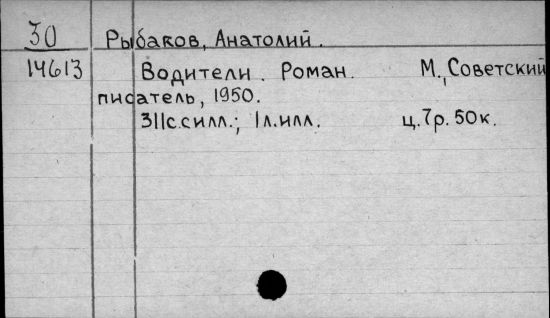 30 Рыбаков, Анатолий.
14613 Водители. Роман. М., Советский
писатель, 1950.
311с.силл.; 1л.илл. ц.7р.50к.